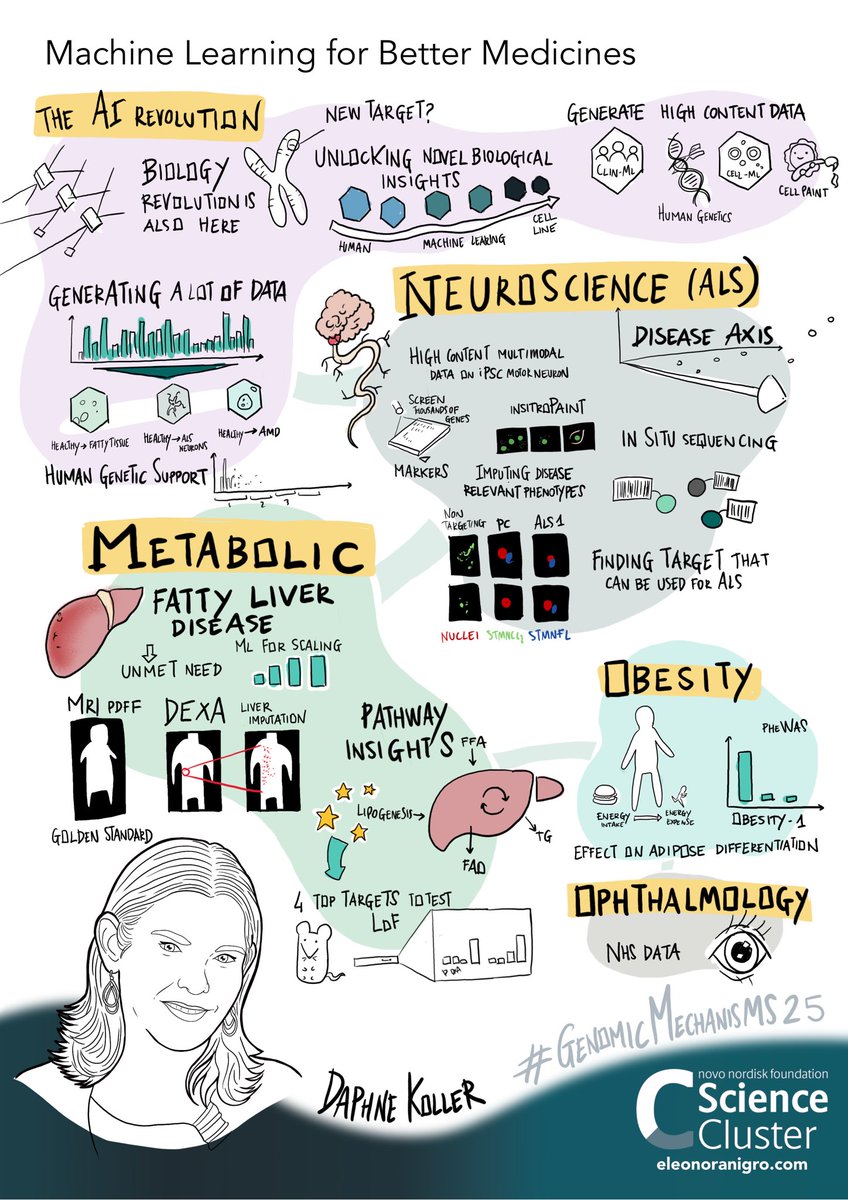 Machine Learning for Better Medicines
THE AI REVOLUTION
BIOLOGY
REVOLUTION IS
ALSO HERE
NEW TARGET?
UNLOCKING NOVEL BIOLOGICAL
INSIGHTS
HUMAN
MACHINE LEARING
CELL
LINE
GENERATE HIGH CONTENT DATA
CLIN-ML
HUMAN GENETICS
CELL-ML
CELL PAINT
GENERATING A LOT OF DATA
HEALTHY → FATTY TISSUE
HEALTHY → ALS
NEURONS
HEALTHY → AMD
HUMAN GENETIC SUPPORT
1 2 3
NEUROSCIENCE (ALS)
HIGH CONTENT MULTIMODAL
DATA ON iPSC MOTOR NEURON
DISEASE AXIS
SCREEN
THOUSANDS OF
GENES
MARKERS
INSITROPAINT
IMPUTING DISEASE
RELEVANT PHENOTYPES
IN SITU SEQUENCING
NON
TARGETING
PC
ALS1
NUCLEI STMNC4 STMNFL
FINDING TARGET THAT
CAN BE USED FOR ALS
METABOLIC
FATTY LIVER
DISEASE
UNMET NEED
ML FOR SCALING
MRI PDFF
GOLDEN STANDARD
DEXA
LIVER
IMPUTATION
PATHWAY
INSIGHTS
FFA
LIPOGENESIS →
TG
FAO
4 TOP TARGETS TO TEST
LOF
OBESITY
ENERGY
INTAKE
ENERGY
EXPENSE
PHEWAS
OBESITY-1
EFFECT ON ADIPOSE DIFFERENTIATION
OPHTHALMOLOGY
NHS DATA
#GENOMICMECHANISMS25
DAPHNE KOLLER
novo nordisk foundation
Science
Cluster
eleonoranigro.com